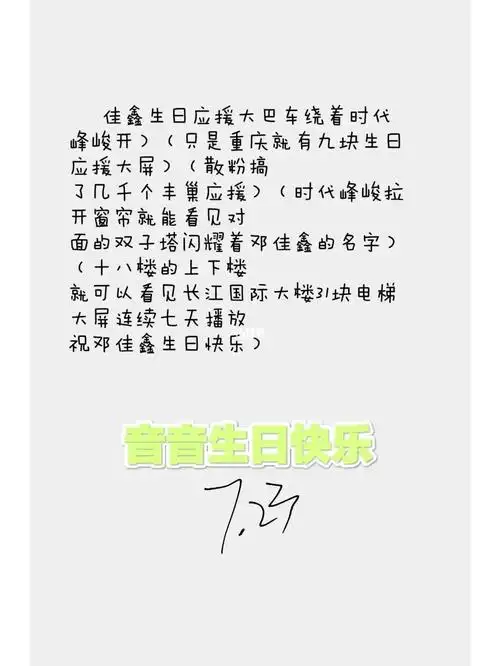 佳鑫生日应援大巴车绕着时代
峰峻开）（只是重庆就有九块生日
应援大屏）（散粉搞
了几千个丰巢应援）（时代峰峻拉
开窗帘就能看见对
面的双子塔闪耀着邓佳鑫的名字）
（十八楼的上下楼
就可以看见长江国际大楼31块电梯
大屏连续七天播放
祝邓佳鑫生日快乐）
音音生日快乐
7.23